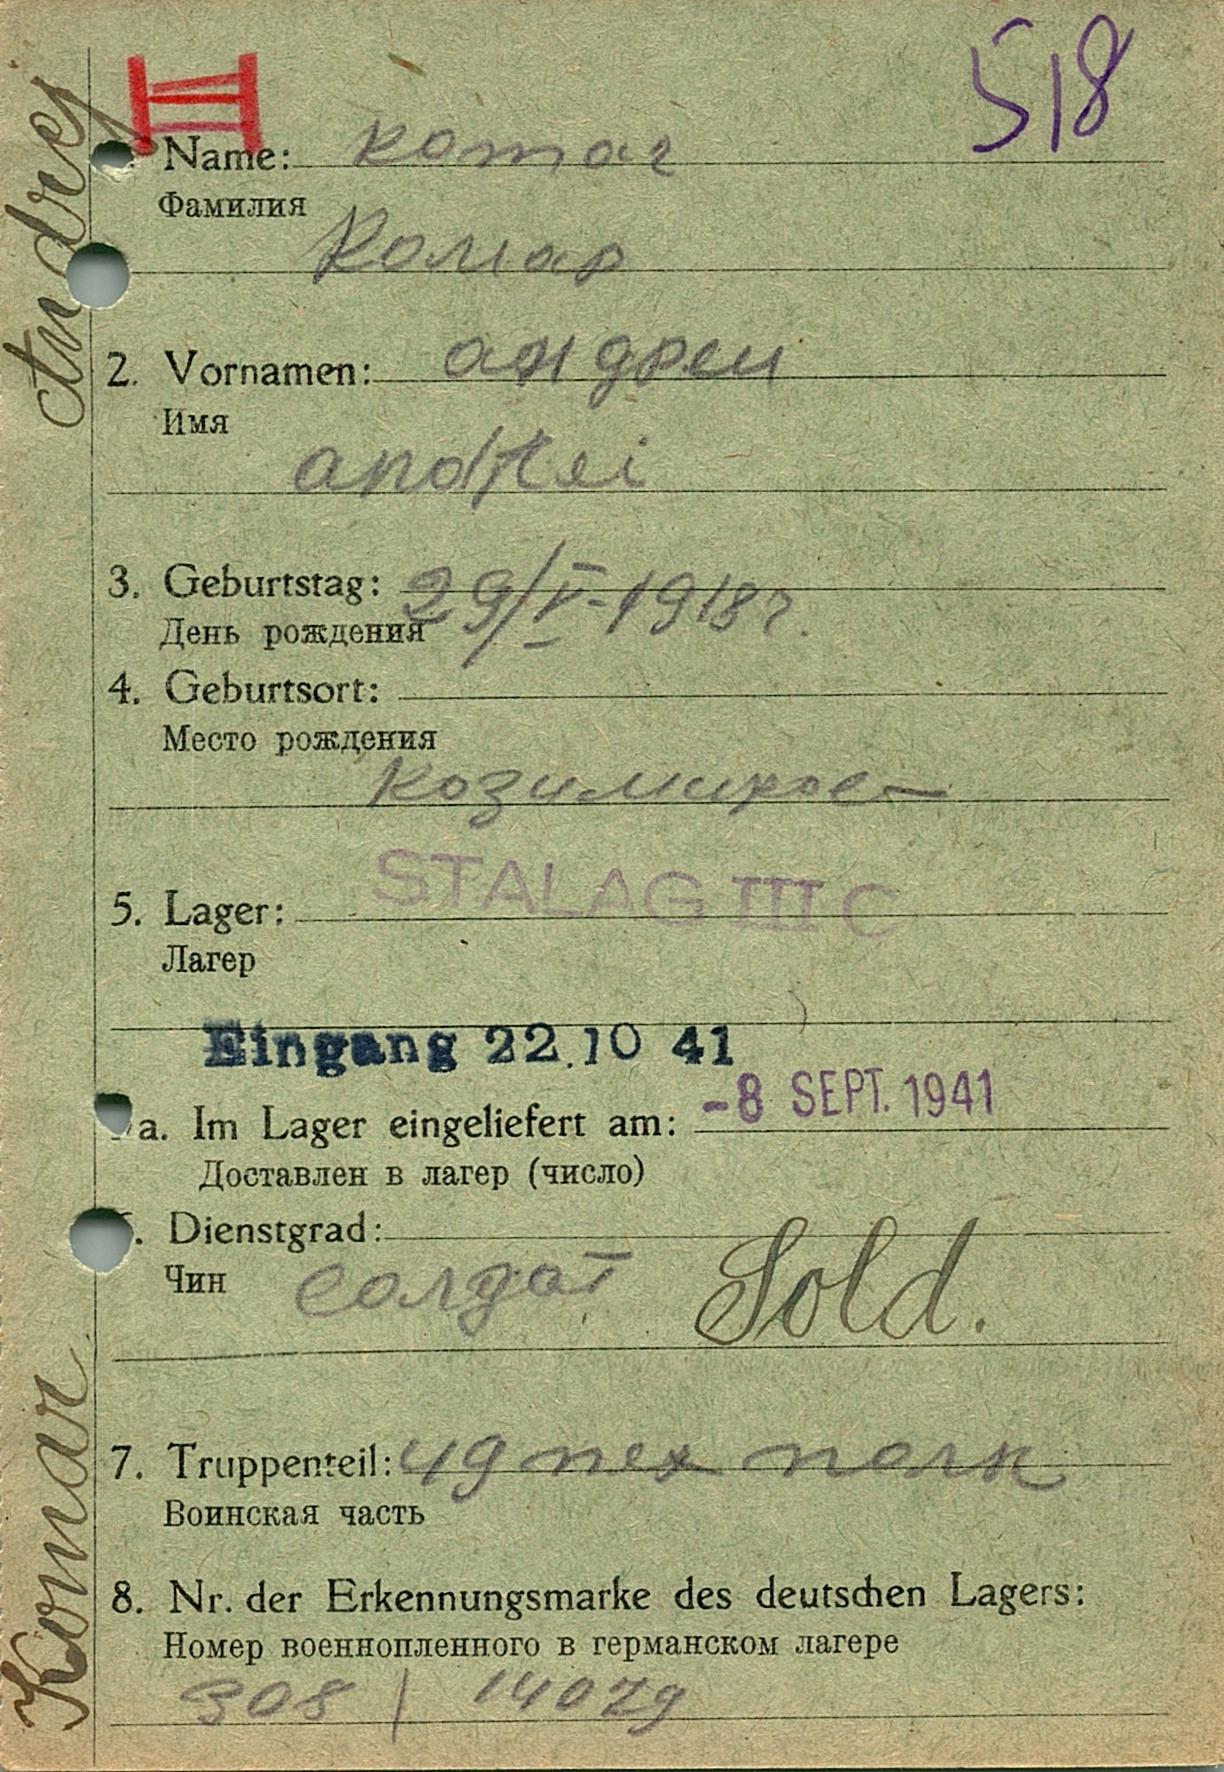 III
518
Name: Komar
Фамилия
Комар
2. Vornamen: андреи
Имя
andrei
3. Geburtstag: 29/V-1918 г.
День рождения
4. Geburtsort:
Место рождения
STALAG III C
5. Lager:
Лагер
Eingang 22.10 41
a. Im Lager eingeliefert am: -8 SEPT. 1941
Доставлен в лагер (число)
. Dienstgrad:
Чин солдат Sold.
7. Truppenteil: 49 пех полк
Воинская часть
8. Nr. der Erkennungsmarke des deutschen Lagers:
Номер военнопленного в германском лагере
308 / 14029
Komar Andrej